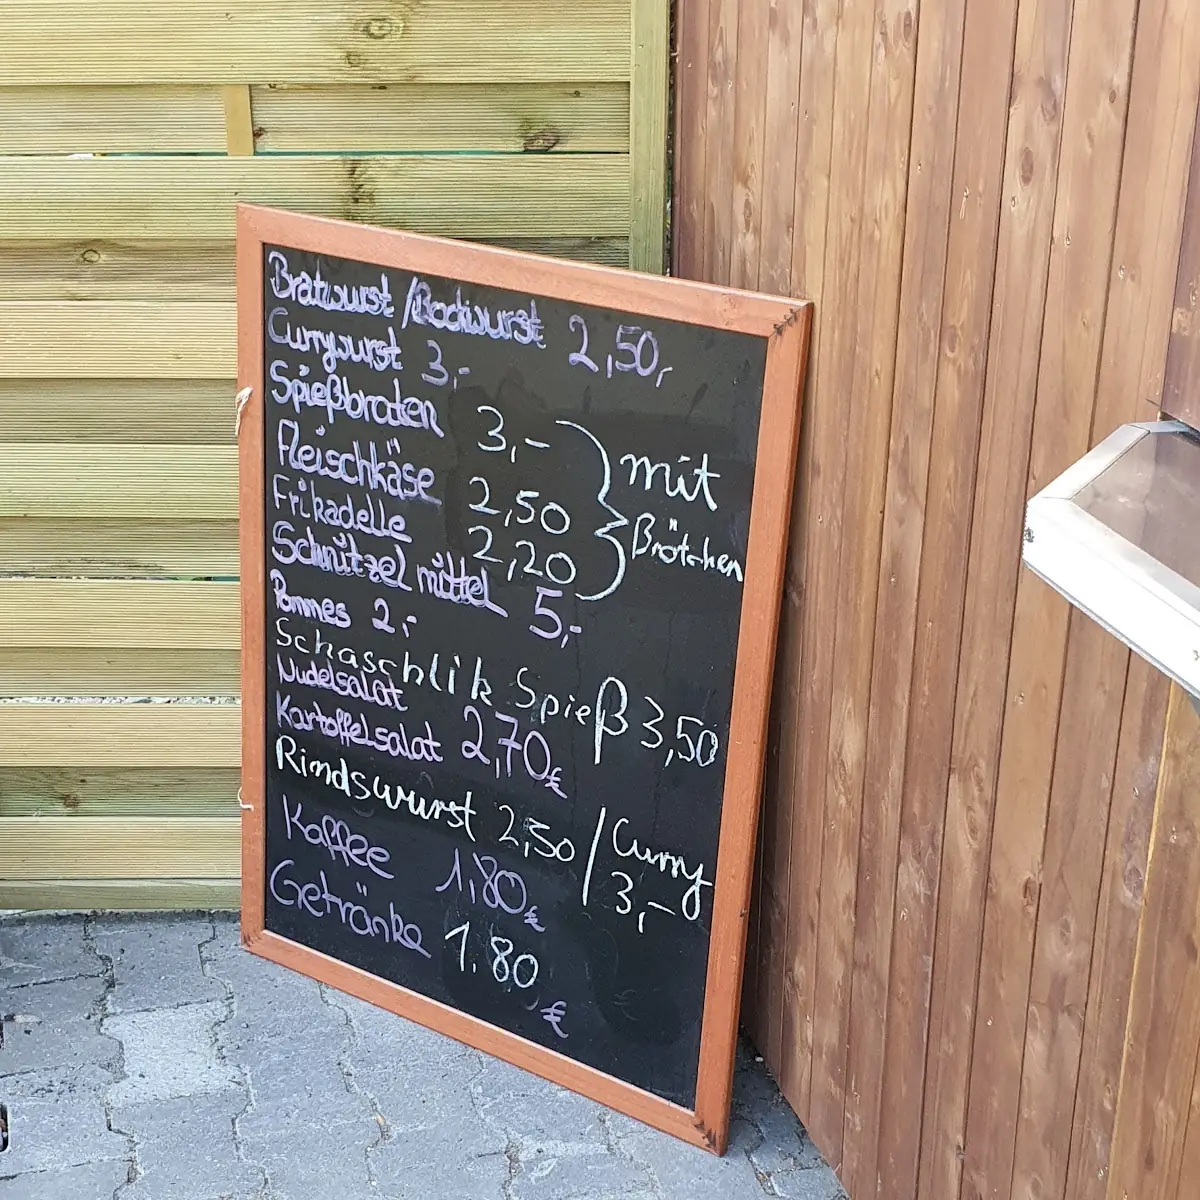 Bratwurst/Bockwurst 2,50,
Currywurst 3,-
Spießbraten 3,-
Fleischkäse 2,50
Frikadelle 2,20
} mit
Brötchen
Schnitzel mittel 5,-
Pommes 2,-
Schaschlik Spieß 3,50
Nudelsalat
Kartoffelsalat 2,70€
Rindswurst 2,50 / Curry
3,-
Kaffee 1,80€
Getränke 1.80
€